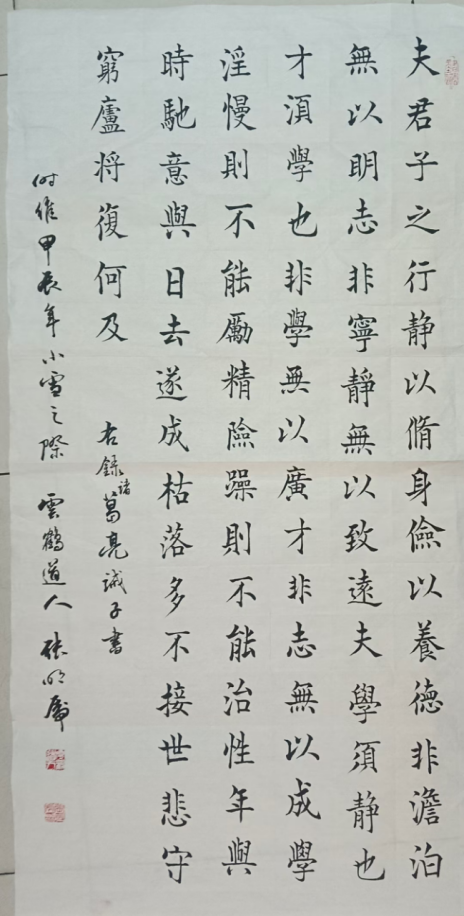 夫君子之行静以脩身儉以養德非澹泊
無以明志非寧靜無以致遠夫學須静也
才湏學也非學無以廣才非志無以成學
淫慢則不能勵精險躁則不能治性年與
時馳意與日去遂成枯落多不接世悲守
窮廬将復何及
右録諸葛亮誡子書
时維甲辰年小雪之際 雲鶴道人